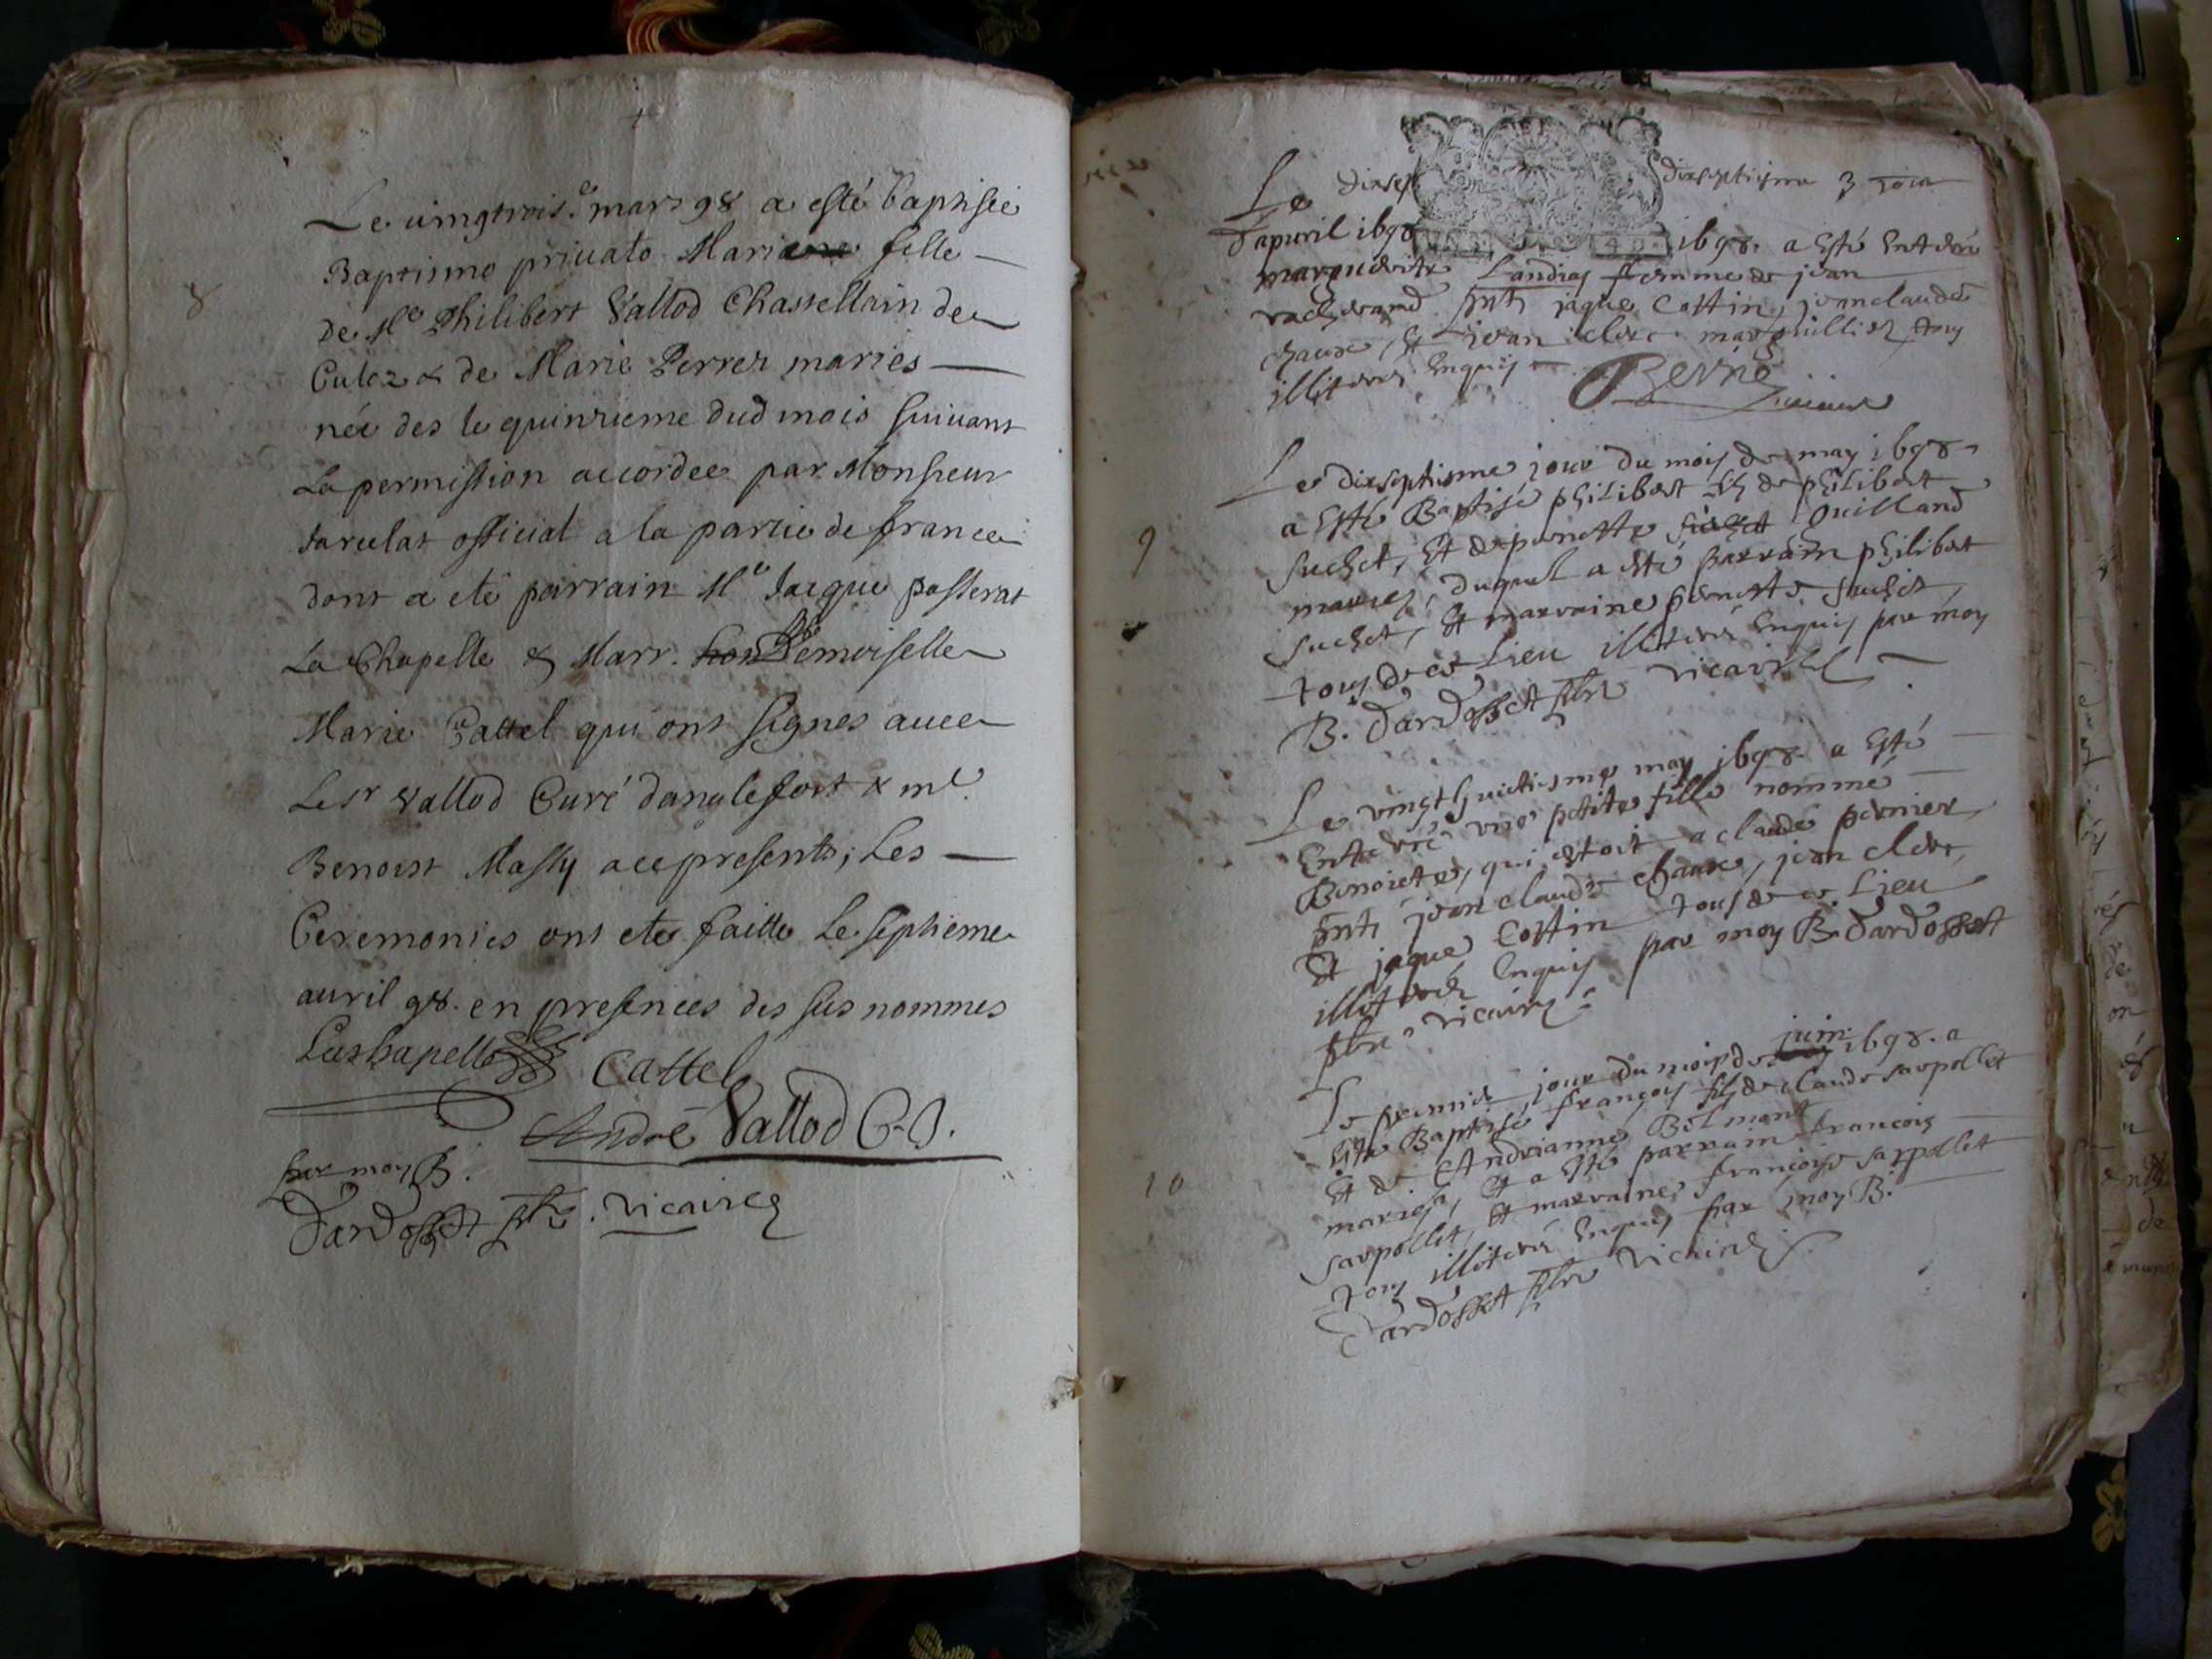 8
Le vingtrois.e mars 98 a esté baptisée
Baptismo privato Marie fille
de Me Philibert Vallod Chastellain de
Culoz & de Marie Perrer maries
née des le quinzieme dud mois suivant
La permission accordee par Monsieur
official a la partie de france
dont a eté parrain Me Jacque passerat
La Chapelle & Marr. Demoiselle
Marie Cattel qui ont signes avec
Le sr Vallod Curé danglefort & me
Benoist Massy a ce presents; Les
Ceremonies ont ete faitte Le septieme
avril 98. en presences des sus nommes
Lachapelle Cattel
André Vallod C.
par moy B.
Dardosset ptre. vicaire
Le dixsep dixseptiesme jour
d'apvril 1698 1698. a Esté Entérré
marguerite Landias femme de jean
pnts jaque Cottin, jean claude
chaux, Et jean clerc marguillier tous
illiterés Enquis
Berne
vicaire
9
Le dixseptisme jour du mois de may 1698
a Esté Baptisé philibert fils de philibert
suchet, Et de pernette suchet Guilland
mariés, duquel a été parrain philibert
suchet, Et marraine pernette suchet
tous de ce Lieu illiterés Enquis par moy
B. Dardosset ptre vicaire
Le vingthuictiesme may 1698 a Esté
Entérré une petite fille nommé
Benoicte, qui estoit a claude pernier
pnts jean claude chaux, jean clerc,
Et jaque Cottin tous de ce Lieu
illiterés Enquis par moy B. Dardosset
ptre vicaire
10
Le premier jour du mois de juin 1698. a
Esté Baptisé françois fils de claude sarpollet
Et de Andrianne Belmont
mariés, Et a Esté parrain francois
sarpollet, Et marraine françoise sarpollet
tous illiterés Enquis par moy B.
Dardosset ptre vicaire